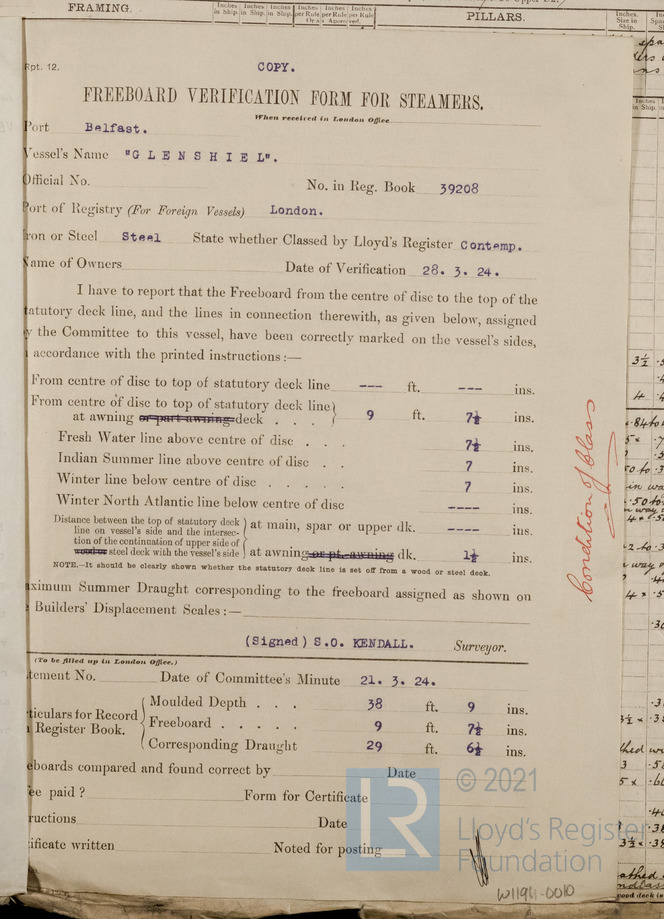 FRAMING.
Inches in Ship.
Inches in Ship.
Inches in Ship.
PILLARS.
Rpt. 12.
COPY.
FREEBOARD VERIFICATION FORM FOR STEAMERS.
When received in London Office
Port Belfast.
Vessel's Name "GLENSHIEL".
Official No. No. in Reg. Book 39208
Port of Registry (For Foreign Vessels) London.
ron or Steel Steel State whether Classed by Lloyd's Register Contemp.
Name of Owners Date of Verification 28. 3. 24.
I have to report that the Freeboard from the centre of disc to the top of the
tatutory deck line, and the lines in connection therewith, as given below, assigned
y the Committee to this vessel, have been correctly marked on the vessel's sides,
accordance with the printed instructions :—
From centre of disc to top of statutory deck line --- ft. --- ins.
From centre of disc to top of statutory deck line
at awning or part awning deck . . . 9 ft. 7½ ins.
Fresh Water line above centre of disc . . . 7½ ins.
Indian Summer line above centre of disc . . 7 ins.
Winter line below centre of disc . . . . . 7 ins.
Winter North Atlantic line below centre of disc ---- ins.
Distance between the top of statutory deck
line on vessel's side and the intersec-
tion of the continuation of upper side of
wood or steel deck with the vessel's side
at main, spar or upper dk. ---- ins.
at awning or pt. awning dk. 1½ ins.
NOTE.—It should be clearly shown whether the statutory deck line is set off from a wood or steel deck.
aximum Summer Draught corresponding to the freeboard assigned as shown on
Builders' Displacement Scales :—
(Signed) S.O. KENDALL. Surveyor.
(To be filled up in London Office.)
tement No. Date of Committee's Minute 21. 3. 24.
ticulars for Record
Register Book.
Moulded Depth . . . 38 ft. 9 ins.
Freeboard . . . . . 9 ft. 7½ ins.
Corresponding Draught 29 ft. 6½ ins.
eboards compared and found correct by Date
ee paid ? Form for Certificate
ructions Date
ificate written Noted for posting
Condition of Class
© 2021
LR
Lloyd's Register
Foundation
W1194-0010